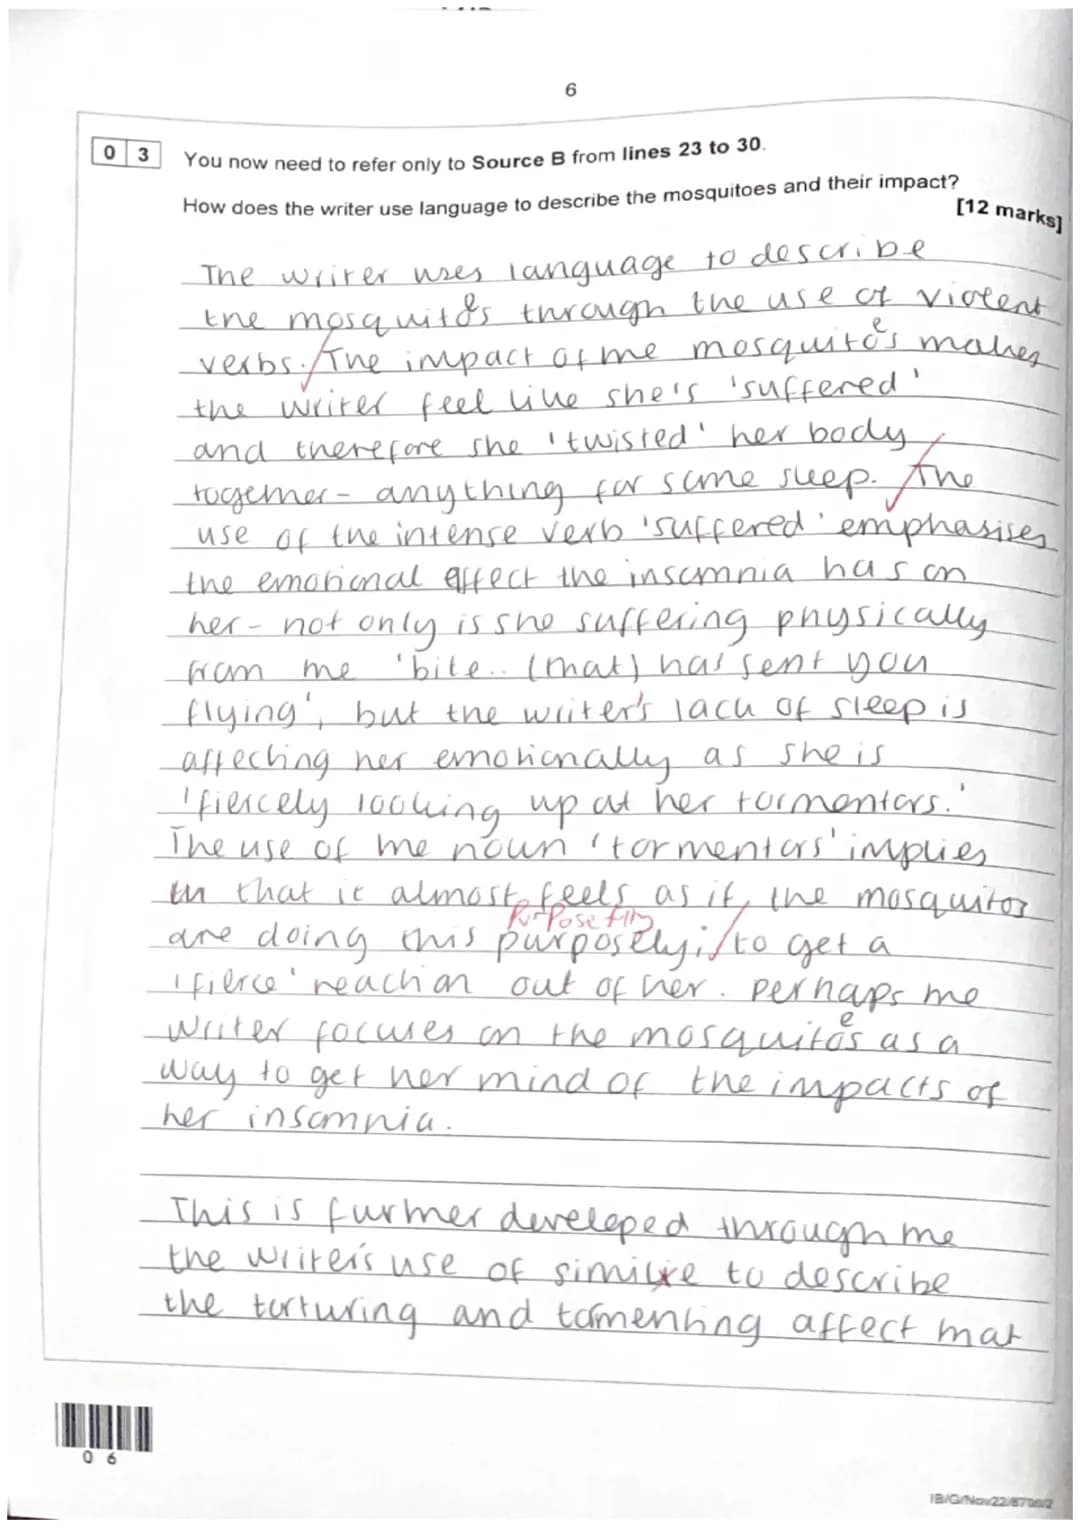 6
0 3 You now need to refer only to Source B from lines 23 to 30.
How does the writer use language to describe the mosquitoes and their impact?
[12 marks]
The writer uses language to describe
the mosquitoes through the use of violent
verbs. The impact of the mosquitoes makes
the writer feel like she's 'suffered'
and therefore she 'twisted' her body
together - anything for some sleep. The
use of the intense verb 'suffered' emphasises
the emotional effect the insomnia has on
her - not only is she suffering physically
from the 'bite.. (that) has sent you
flying', but the writer's lack of sleep is
affecting her emotionally as she is
'fiercely looking up at her tormentors.'
The use of the noun 'tormentors' implies
that it almost feels as if, the mosquitos
Purposefully
are doing this purposely; to get a
'fierce' reaction out of her. Perhaps the
writer focuses on the mosquitoes as a
way to get her mind of the impacts of
her insomnia.
This is further developed through the
the writer's use of similie to describe
the torturing and tormenting affect that
0 6
IB/G/Nov22/8700/2